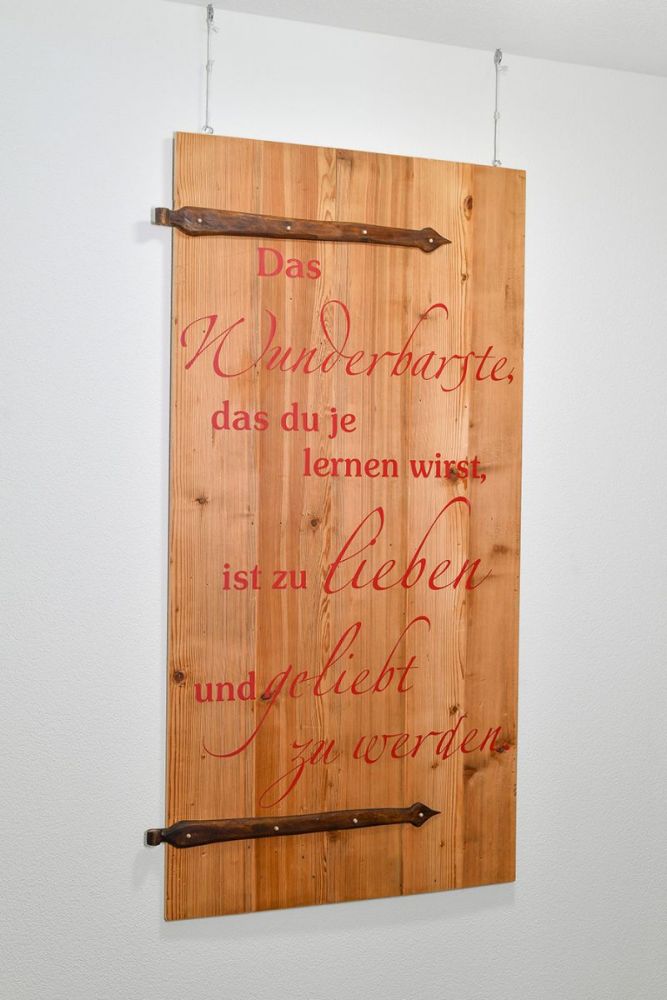 Das
Wunderbarste,
das du je
lernen wirst,
ist zu lieben
und geliebt
zu werden.